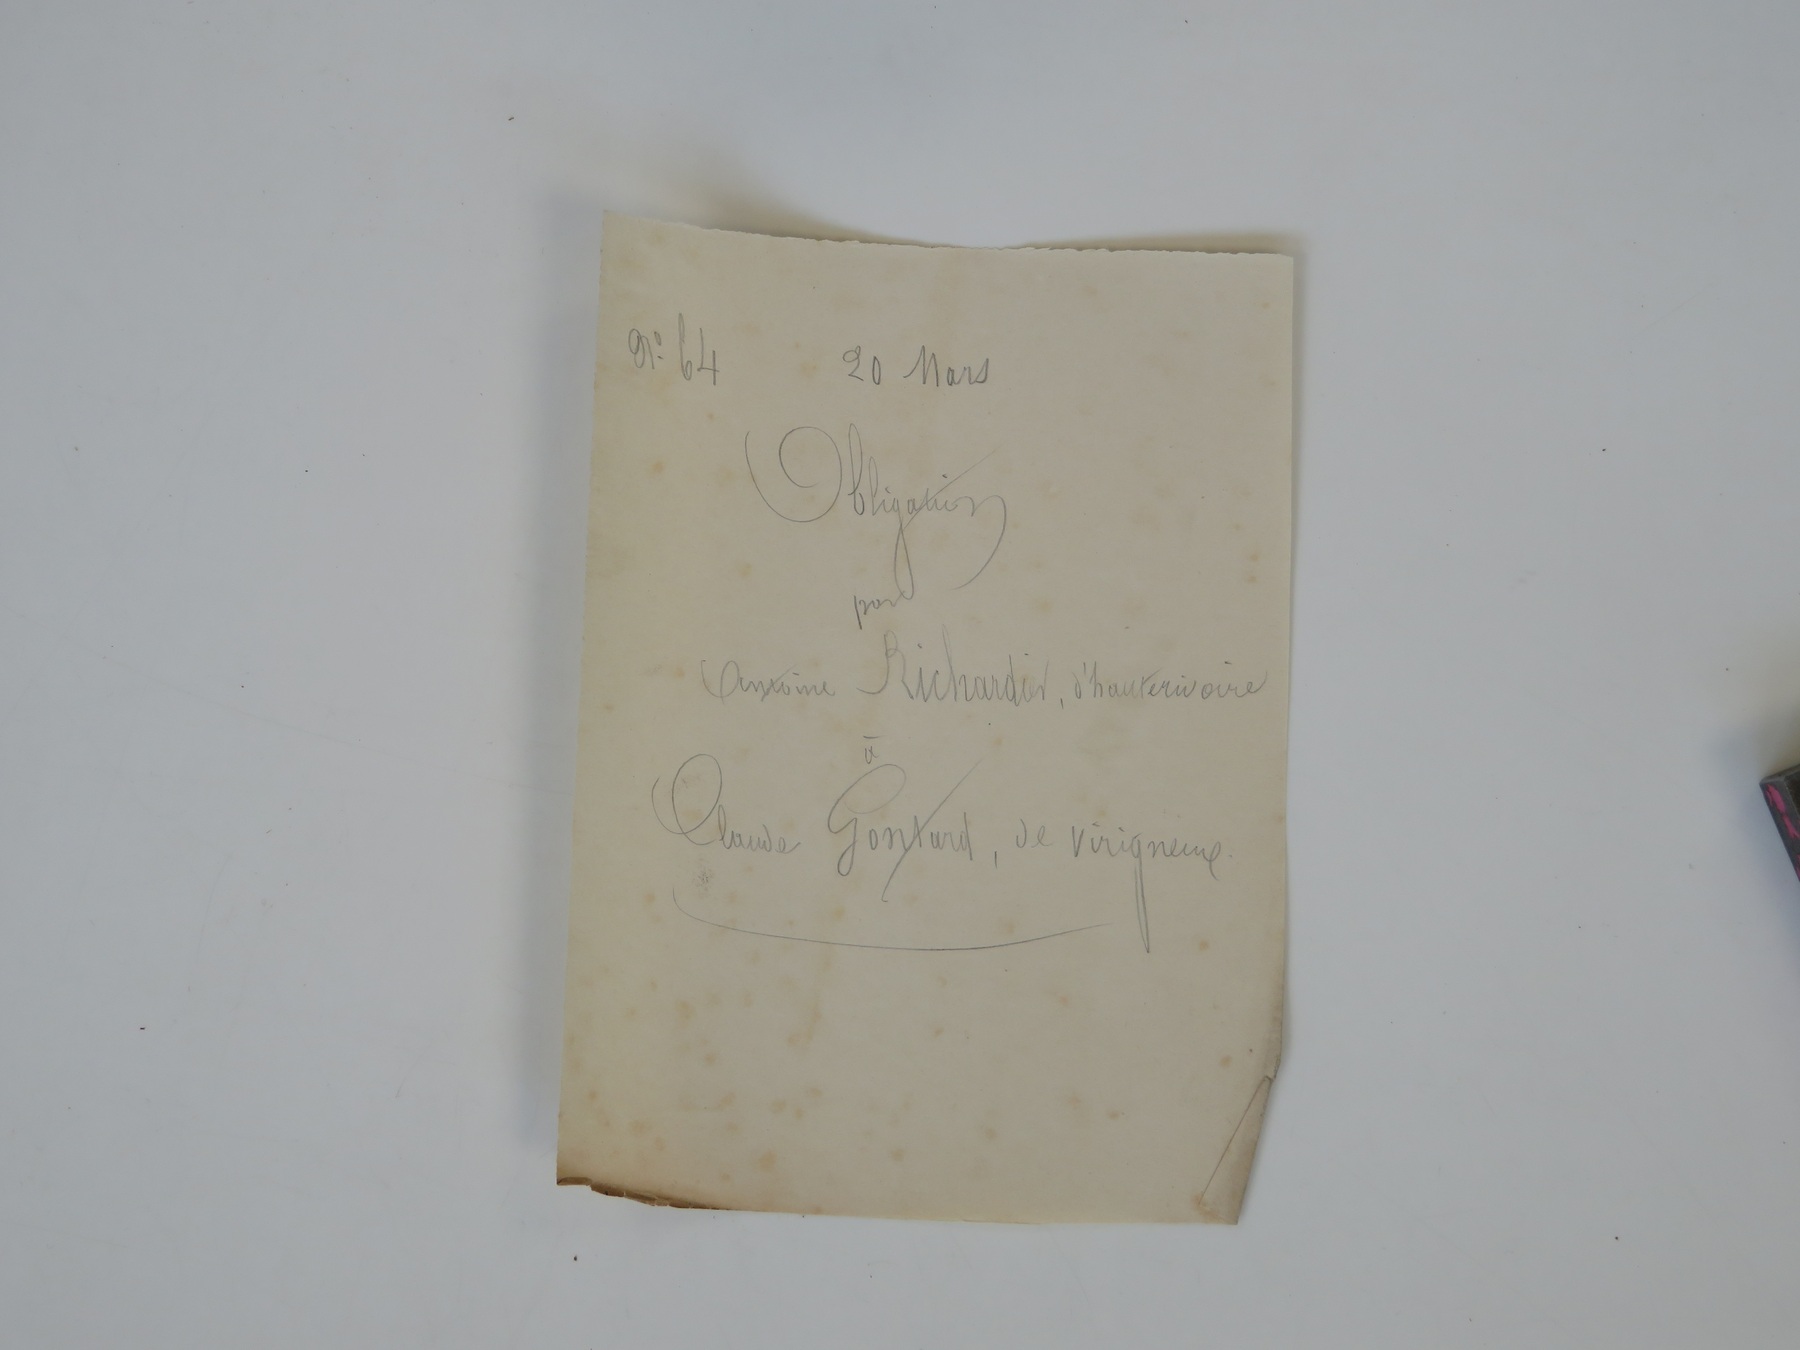 N° 64 20 Mars
Obligation
par
Antoine Richardier, d'hauterivoire
à
Claude Gontard, de Virigneux.